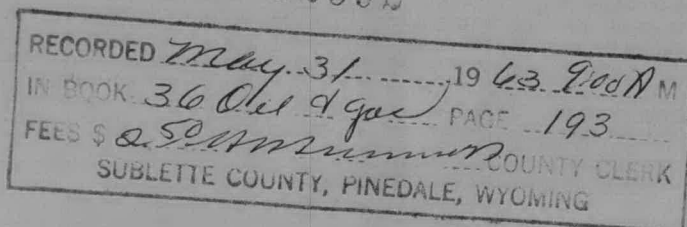 RECORDED May 31 1963 9:00 A M
IN BOOK 36 Oil & Gas PAGE 193
FEES $ 2.50 COUNTY CLERK
SUBLETTE COUNTY, PINEDALE, WYOMING